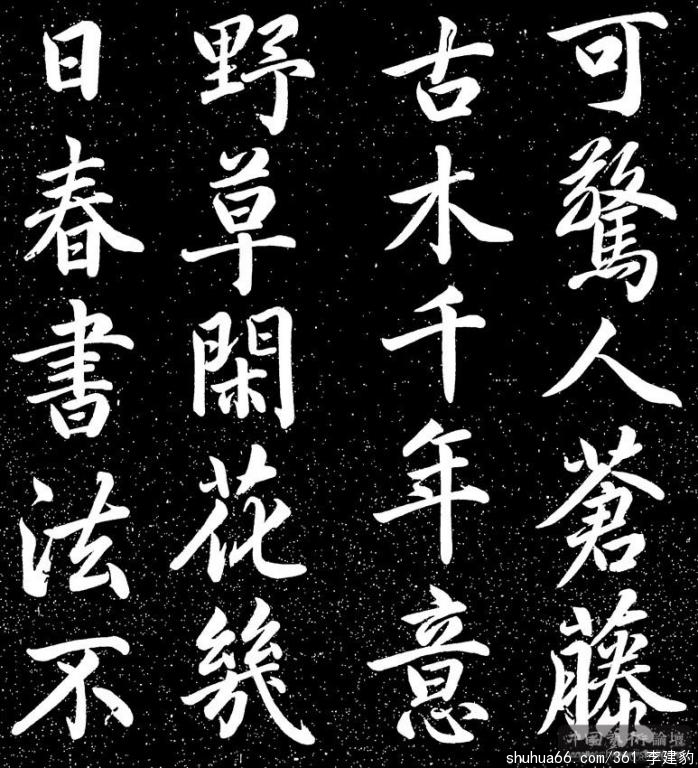 可驚人蒼藤
古木千年意
野草閑花幾
日春書法不
中国藝術論壇
shuhua66.com/361 李建豹